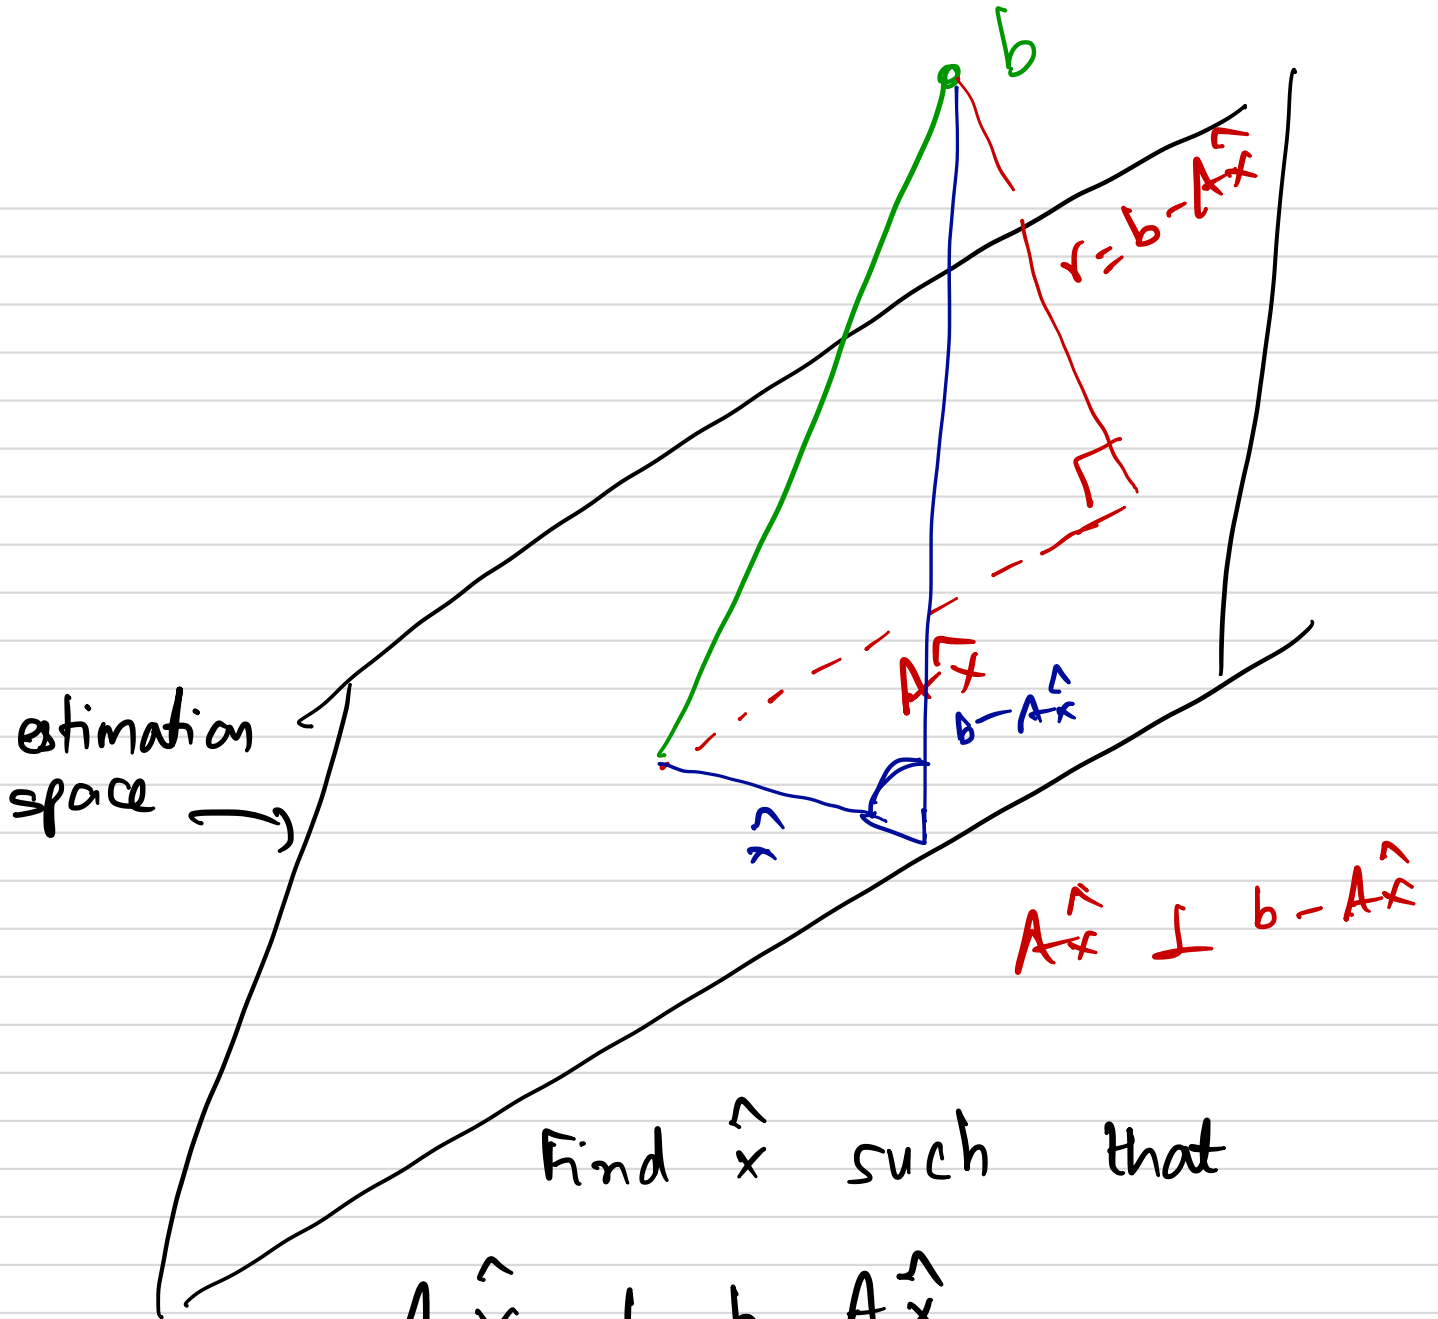 b
r = b - Ax̂
Ax̂
b - Ax̂
estimation
space
x̂
Ax̂ ⊥ b - Ax̂
Find x̂ such that
Ax̂ ⊥ b - Ax̂